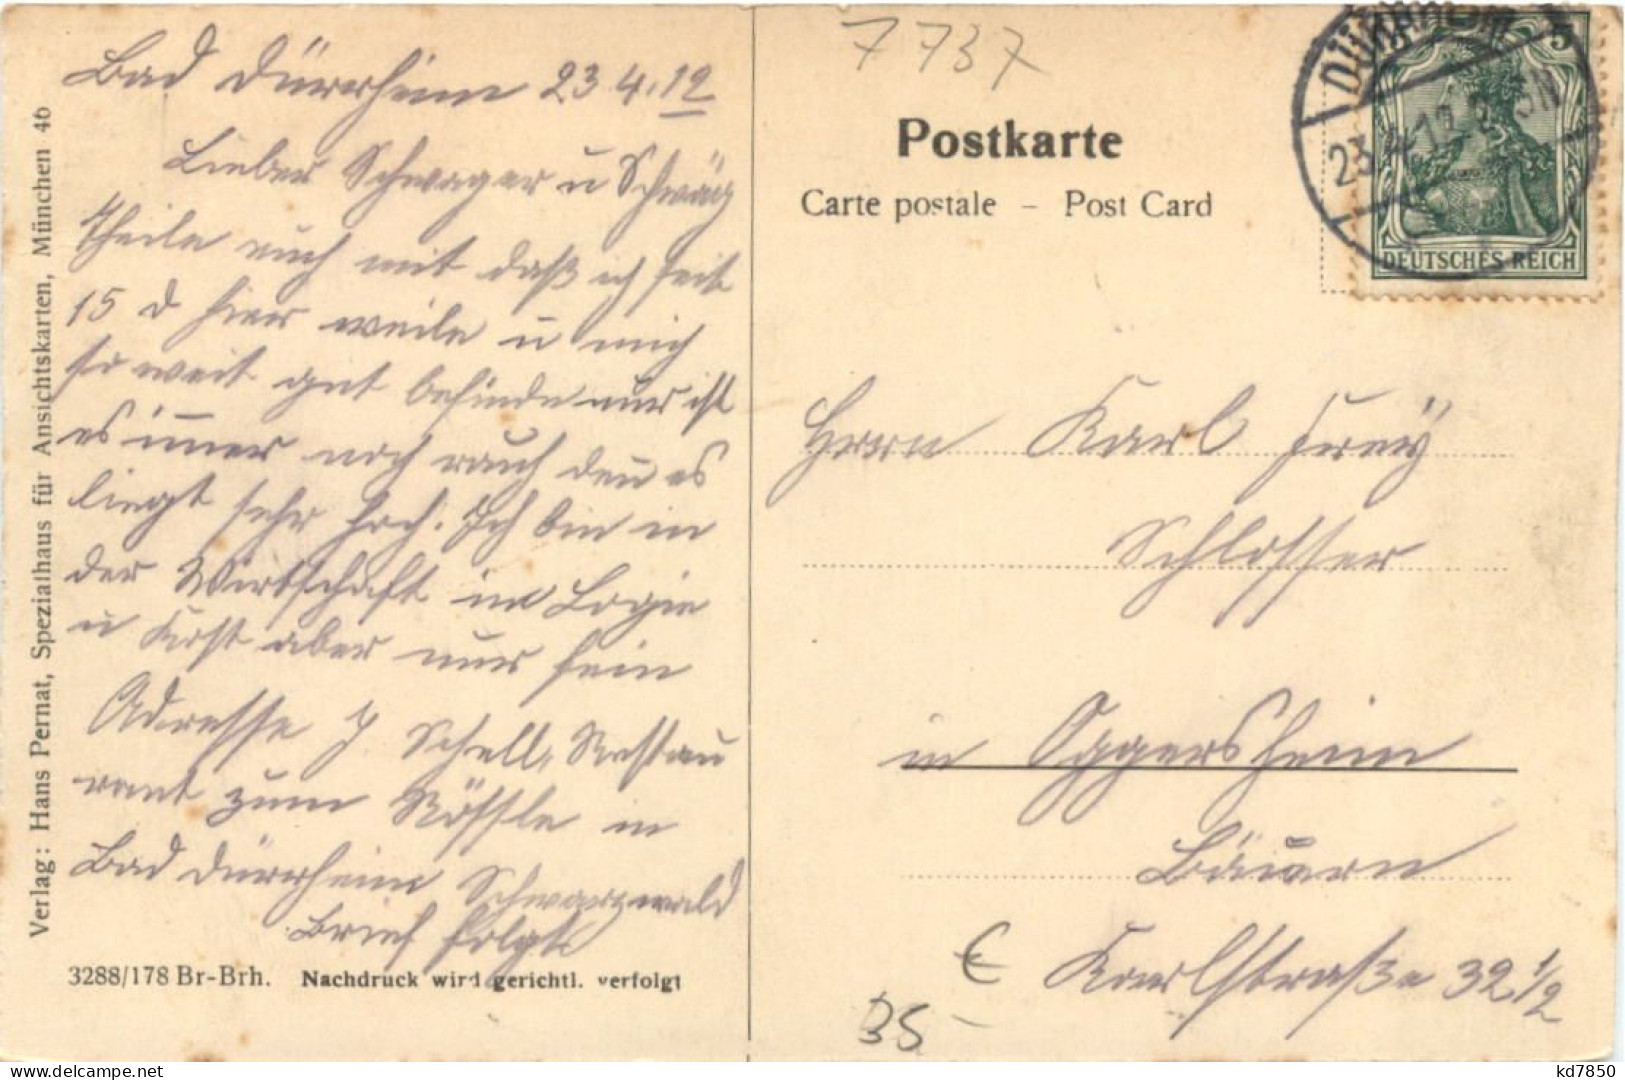 Bad Dürrheim 23 4. 12
Lieber Schwager u Schwäg
Theile euch mit daß ich seit
15 d hier weile u mich
so weit gut befinde nur ist
es immer noch rauh den es
liegt sehr hoch. Ich bin in
der Wirtschaft in Logie
u Kost aber nur sein
Adresse J. Schell, Restau
rant zum Rössle in
Bad Dürrheim Schwarzwald
Brief folgt
3288/178 Br-Brh. Nachdruck wird gerichtl. verfolgt
Verlag: Hans Pernat, Spezialhaus für Ansichtskarten, München 46
7737
Postkarte
Carte postale – Post Card
DÜRRHEIM
23.4.12
5
DEUTSCHES REICH
Herrn Karl Frey
Schlosser
in Oggersheim
Bayern
Karlstraße 32 1/2
€
35 -
kd7850